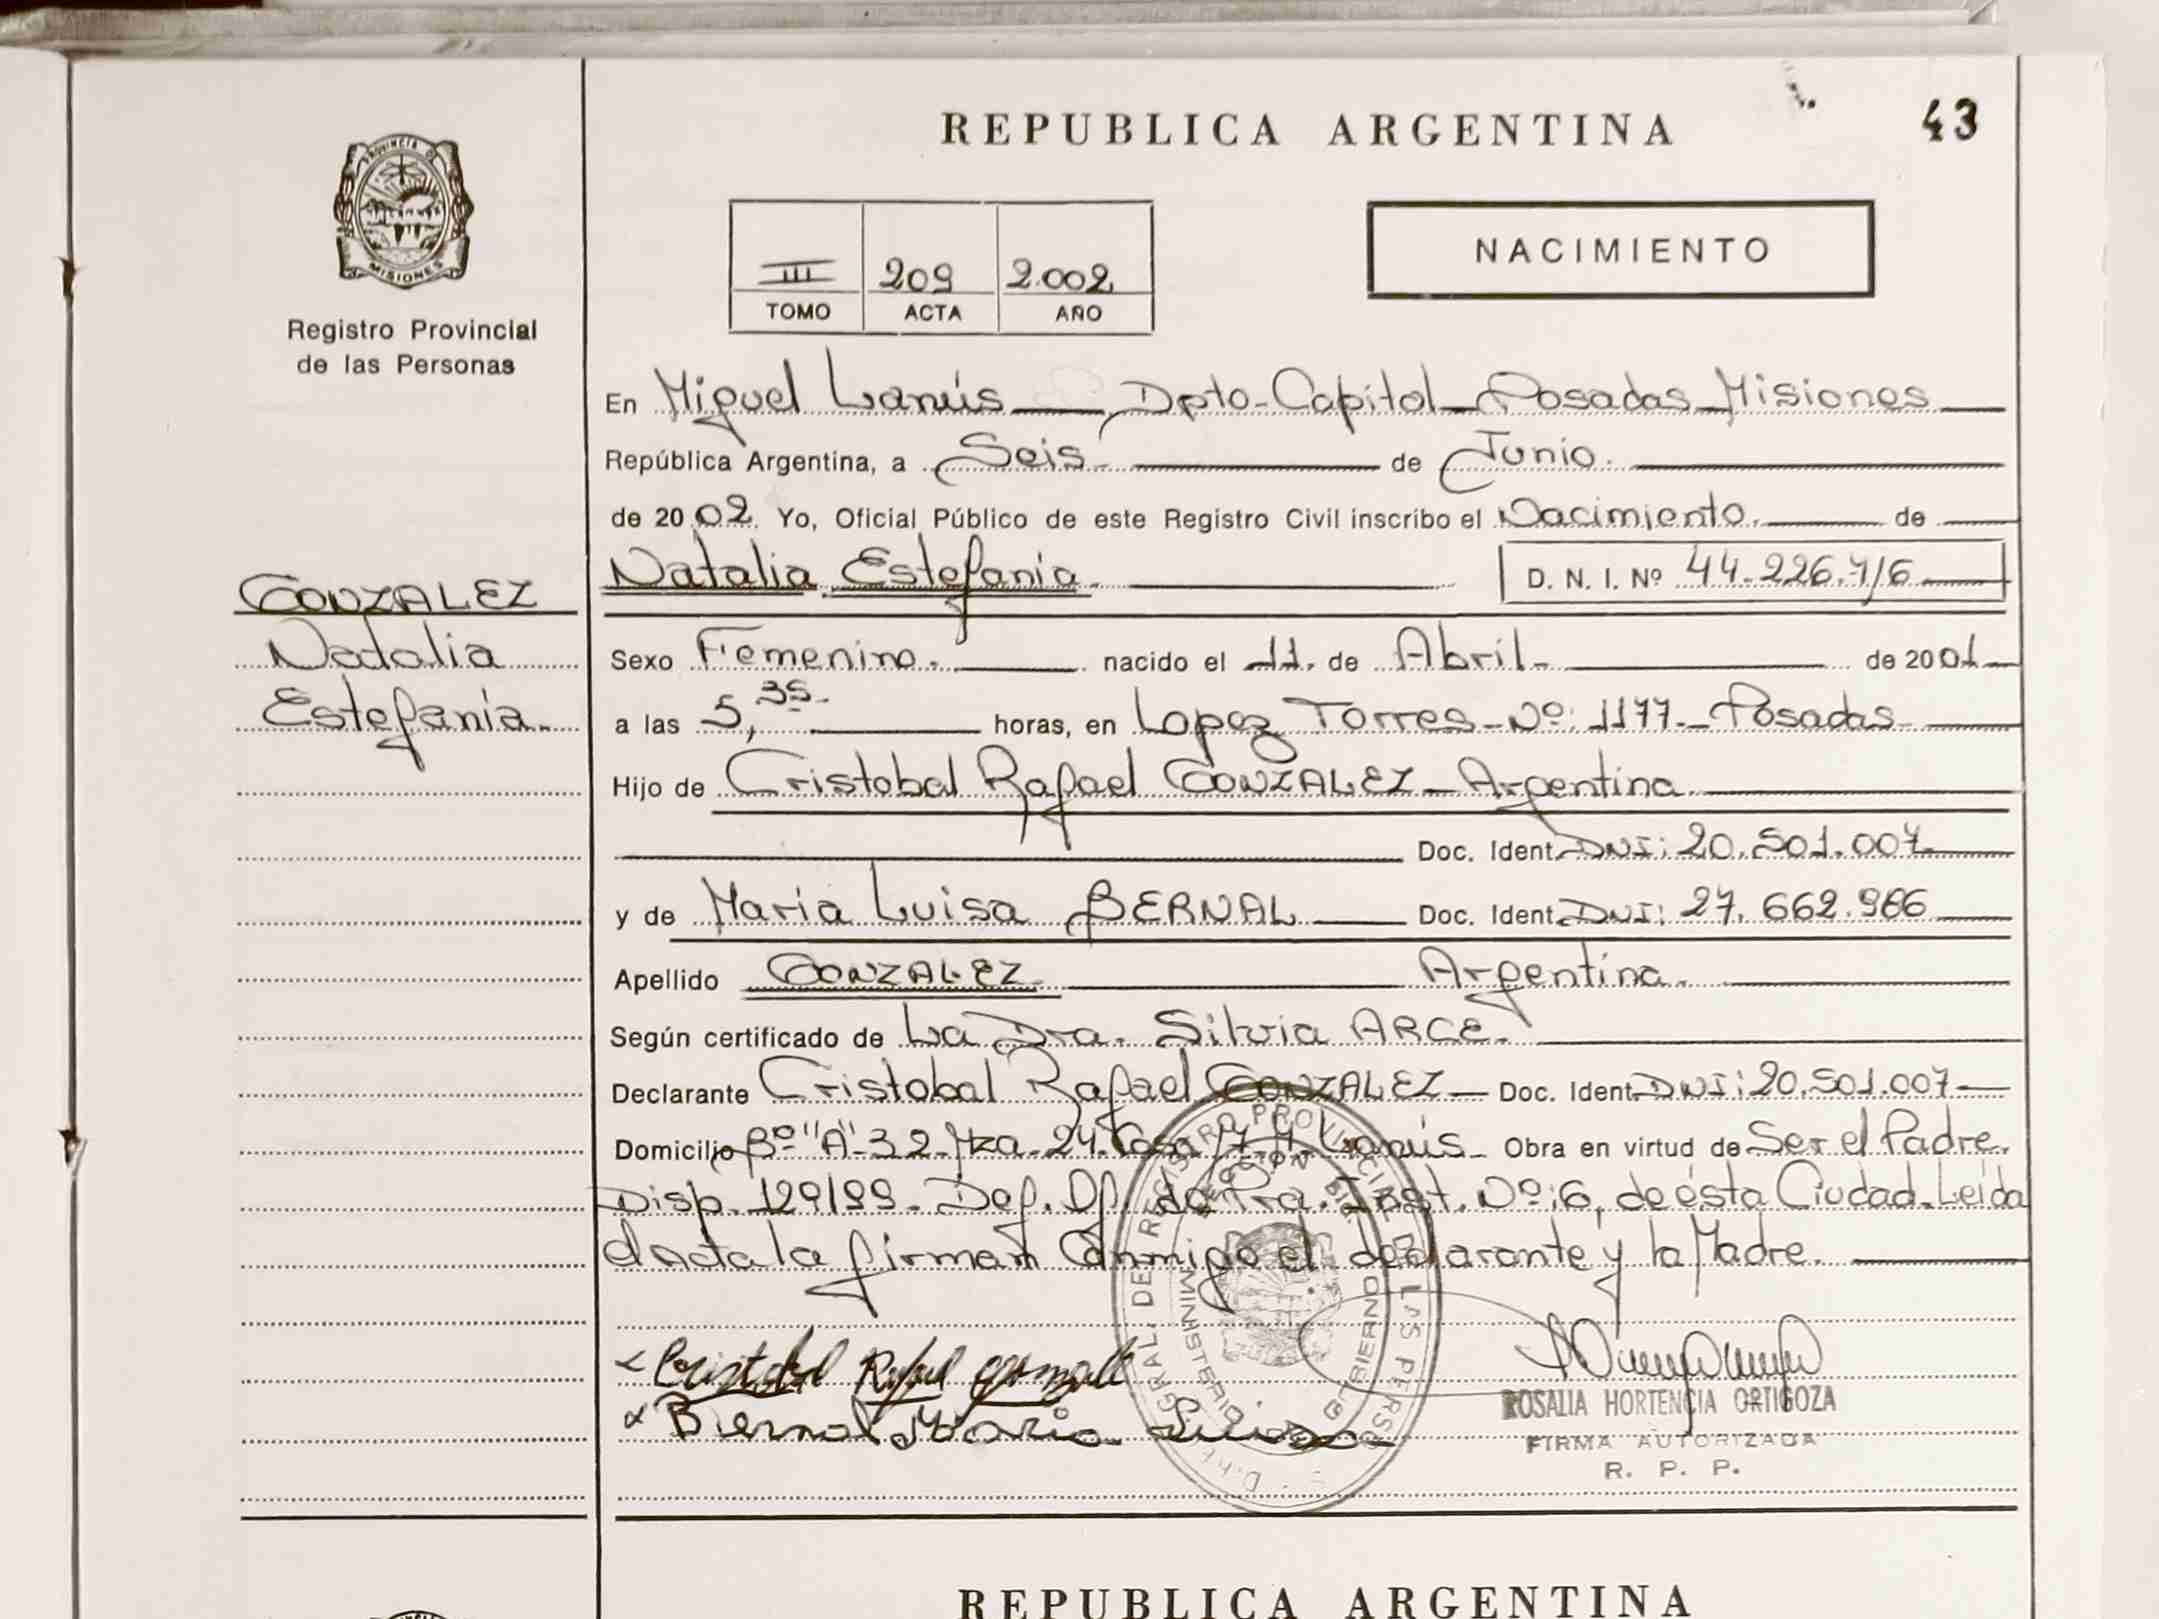 REPUBLICA ARGENTINA
43
PROVINCIA DE
MISIONES
Registro Provincial
de las Personas
III 209 2.002
TOMO ACTA AÑO
NACIMIENTO
En Miguel Lanús, Dpto-Capital-Posadas-Misiones
República Argentina, a Seis de Junio.
de 2002. Yo, Oficial Público de este Registro Civil inscribo el Nacimiento. de
Natalia Estefanía. D. N. I. Nº 44.226.716
GONZALEZ
Natalia
Estefanía.
Sexo Femenino. nacido el 11. de Abril. de 2001
a las 5,35. horas, en Lopez Torres-Nº: 1177.-Posadas
Hijo de Cristobal Rafael GONZALEZ-Argentina
Doc. Ident. DNI: 20.501.007
y de Maria Luisa BERNAL Doc. Ident. DNI: 27.662.986
Apellido GONZALEZ Argentina.
Según certificado de La Dra. Silvia ARCE.
Declarante Cristobal Rafael GONZALEZ Doc. Ident. DNI: 20.501.007
Domicilio Bº "A" 3 2 Mza. 24. Casa 17 M Lanús- Obra en virtud de Ser el Padre.
Disp. 129/99. Def. Of. de Pra. Inst. Nº:6, de ésta Ciudad. Leída
el Acta la firman Conmigo el declarante y la Madre.
Cristobal Rafael
Bernal Maria Luisa
GRAL. DE REGISTRO PROVINCIAL DE LAS PERSO
MINISTERIO DE GOBIERNO
ROSALIA HORTENCIA ORTIGOZA
FIRMA AUTORIZADA
R. P. P.
REPUBLICA ARGENTINA